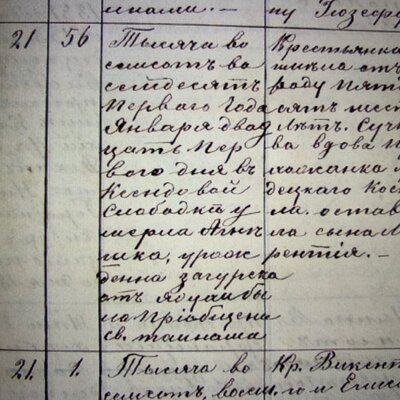 инами. —
ну Іозефу
21
56
Тысяча во
семсотъ во
семдесятъ
Перваго Года
Января двад
цать Пер
ваго дня въ
Ксендовой
Слободкѣ у
мерла Агнѣ
шка, урож
денна Загурска
отъ бы
ла Пріобщена
св. таинама
Крестьянка
имѣла отъ
роду Пят
сятъ шест
Лѣтъ.
ва вдова п
хожанка
децкаго Кос
ла. остав
ла сына Л
рентія. —
21.
1.
Тысяча во
семсотъ, восем.
Кр. Викент
го и